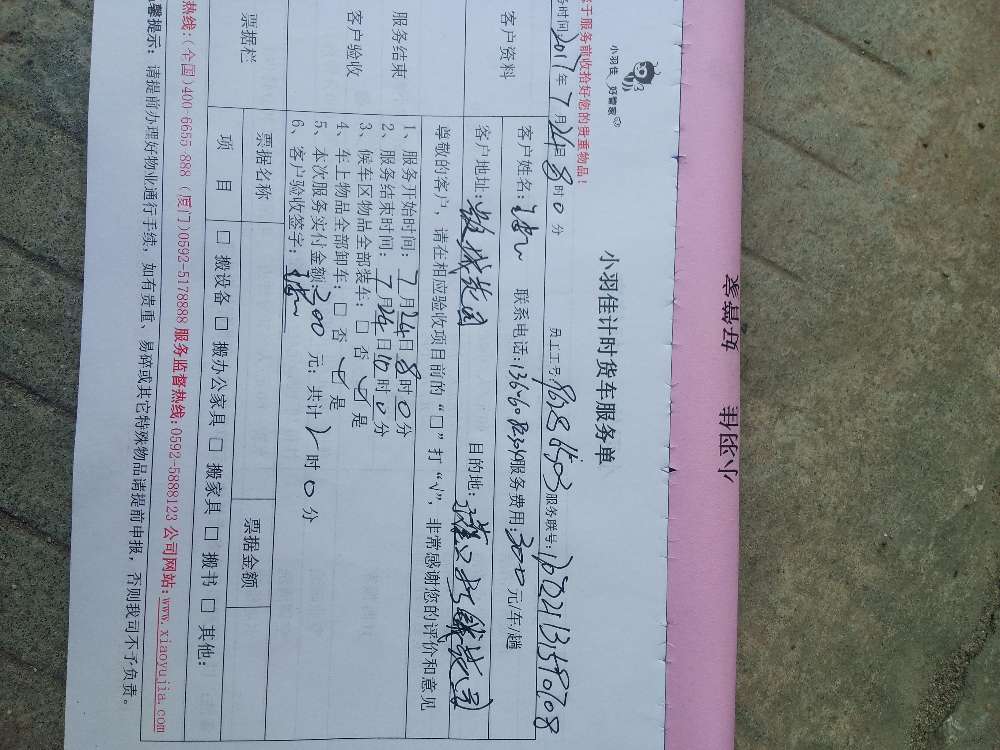 小羽佳 好管家
小羽佳 好管家
小羽佳计时货车服务单
于服务前收拾好您的贵重物品！
时间2017年7月24日8时0分 员工工号: 服务联号:
客户资料
客户姓名: 联系电话: 服务费用:300元/车/趟
客户地址: 目的地:
服务结束
客户验收
尊敬的客户，请在相应验收项目前的“□”打“√”，非常感谢您的评价和意见
1、服务开始时间：7月24日8时0分
2、服务结束时间：7月24日10时0分
3、候车区物品全部装车：□ 否 ☑ 是
4、车上物品全部卸车：□ 否 ☑ 是
5、本次服务实付金额:300元；共计2时0分
6、客户验收签字：
票据栏
票据名称 票据金额
项 目 □ 搬设备 □ 搬办公家具 □ 搬家具 □ 搬书 □ 其他：
热线:(全国)400-6655-888 (厦门)0592-5178888 服务监督热线:0592-5888123 公司网站:www.xiaoyujia.com
馨提示：请提前办理好物业通行手续，如有贵重、易碎或其它特殊物品请提前申报，否则我司不予负责。